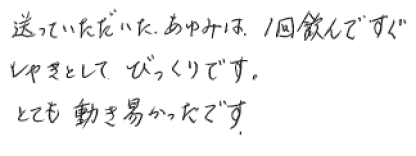 送っていただいた、あゆみは、1回飲んですぐ
しゃきとして びっくりです。
とても動き易かったです.